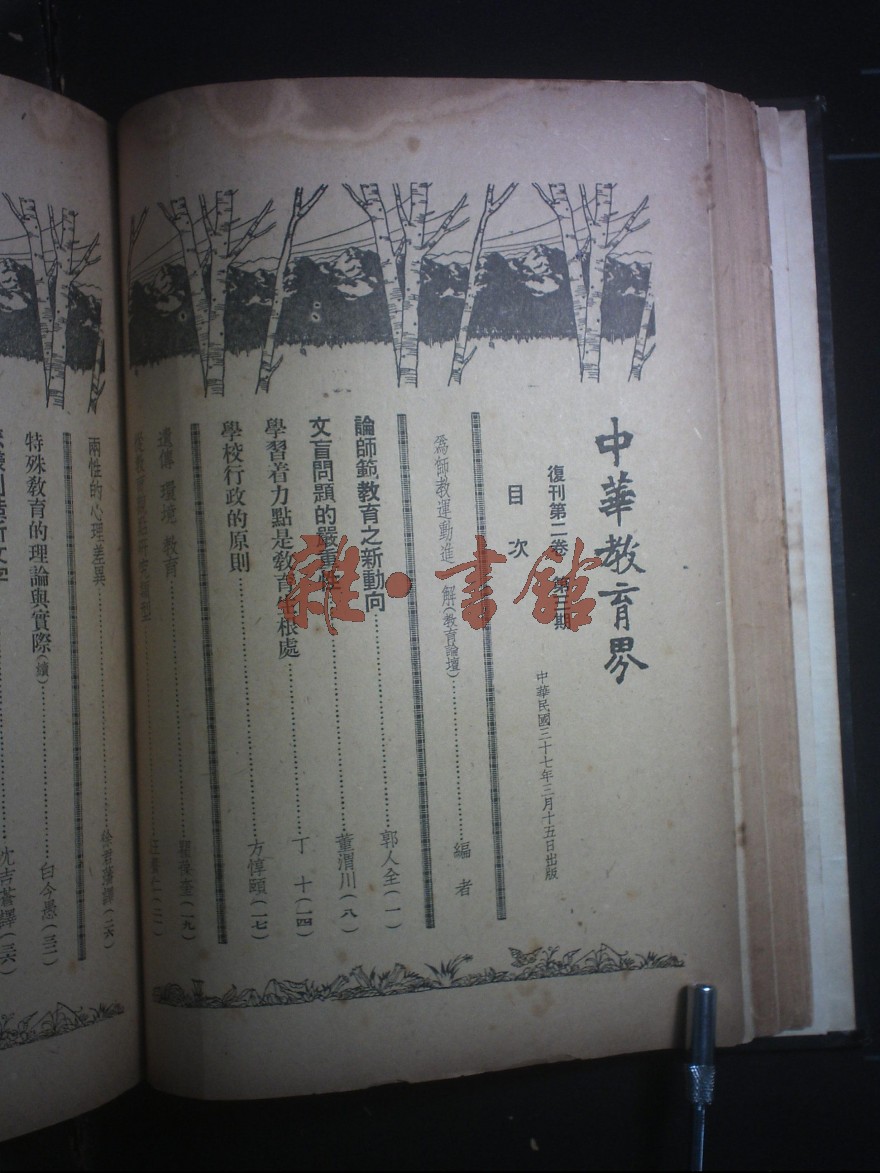 中華教育界
復刊第二卷 第三期
中華民國三十七年三月十五日出版
目次
為師教運動進 解(教育論壇)……編者
論師範教育之新動向……郭人全(一)
文盲問題的嚴重性……董渭川(八)
學習着力點是教育生根處……丁十(一四)
學校行政的原則……方惇頤(一七)
遺傳 環境 教育……(一九)
兩性的心理差異……徐君藩譯(二六)
特殊教育的理論與實際(續)……白今愚(三一)
沈吉蒼譯(三六)
雜·書館